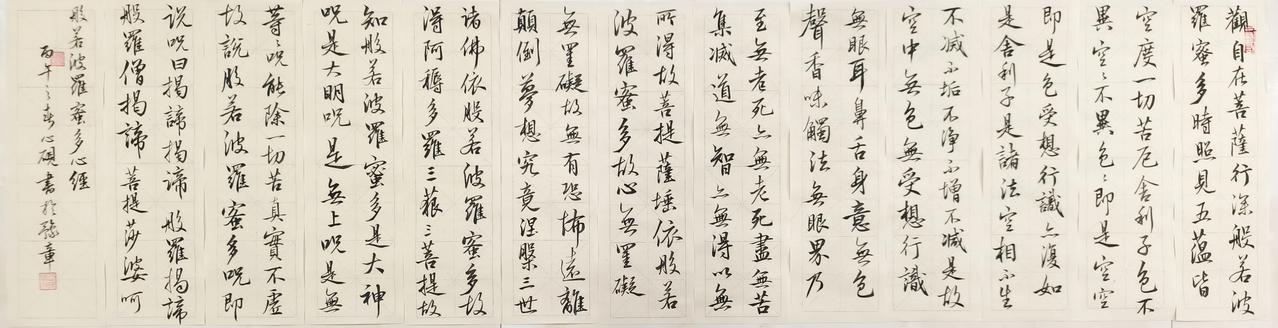 觀自在菩薩行深般若波
羅蜜多時照見五蘊皆
空度一切苦厄舍利子色不
異空〻不異色〻即是空空
即是色受想行識亦復如
是舍利子是諸法空相不生
不滅不垢不淨不增不減是故
空中無色無受想行識
無眼耳鼻舌身意無色
聲香味觸法無眼界乃
至無老死亦無老死盡無苦
集滅道無智亦無得以無
所得故菩提薩埵依般若
波羅蜜多故心無罣礙
無罣礙故無有恐怖遠離
顛倒夢想究竟涅槃三世
諸佛依般若波羅蜜多故
得阿耨多羅三藐三菩提故
知般若波羅蜜多是大神
呪是大明呪是無上呪是無
等〻呪能除一切苦真實不虛
故說般若波羅蜜多呪即
說呪曰揭諦揭諦般羅揭諦
般羅僧揭諦 菩提莎婆呵
般若波羅蜜多心經
丙午之春心硯書於豫章